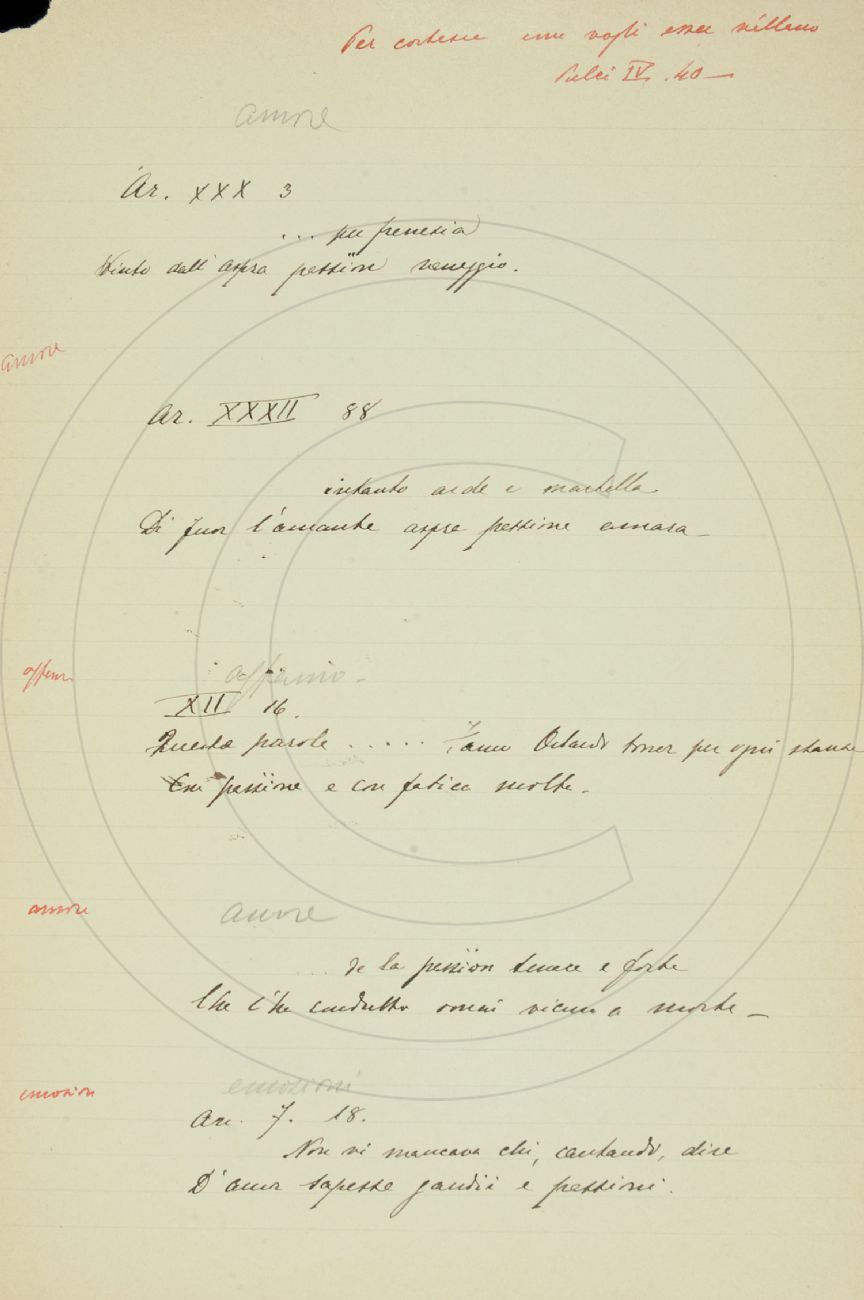 Per cortesia non vogli esser villano
Pulci IV. 40 —
amore
Ar. XXX 3
... per frenesia
Vinto dall' aspra passïon vaneggio.
amore
Ar. XXXII 88
intanto arde e martella
Di fuor l'amante aspra passione amara —
affanno
affanno —
XII 16.
Queste parole ..... fanno Orlando tornar per ogni stanza
Con passïone e con fatica molta.
amore
amore
... de la passïon tenace e forte
Che l'ha condutto omai vicino a morte —
emozioni
emozioni
Ar. 7. 18.
Non vi mancava chi, cantando, dire
D'amor sapesse gaudii e passïoni.